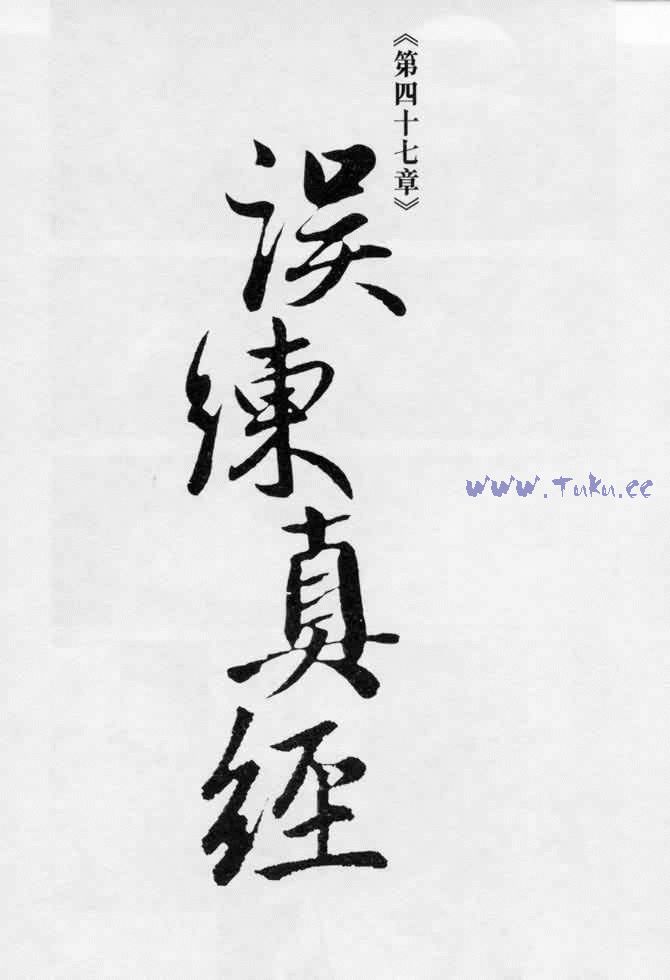 《第四十七章》
誤練真經
www.Tuku.cc